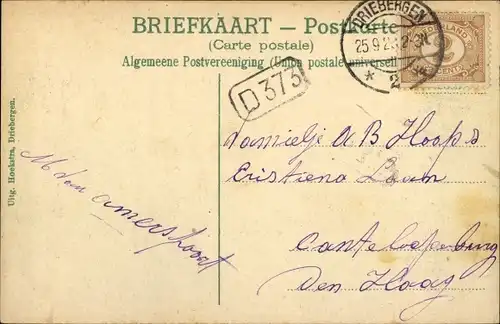 BRIEFKAART – Postkarte
(Carte postale)
Algemeene Postvereeniging (Union postale universelle)
DRIEBERGEN
25.9.2
2
NEDERLAND
CENT
D 373
Uitg. Hoekstra, Driebergen.
M
amersfoort
A B Hoops
Cristiena Laan
Den Haag